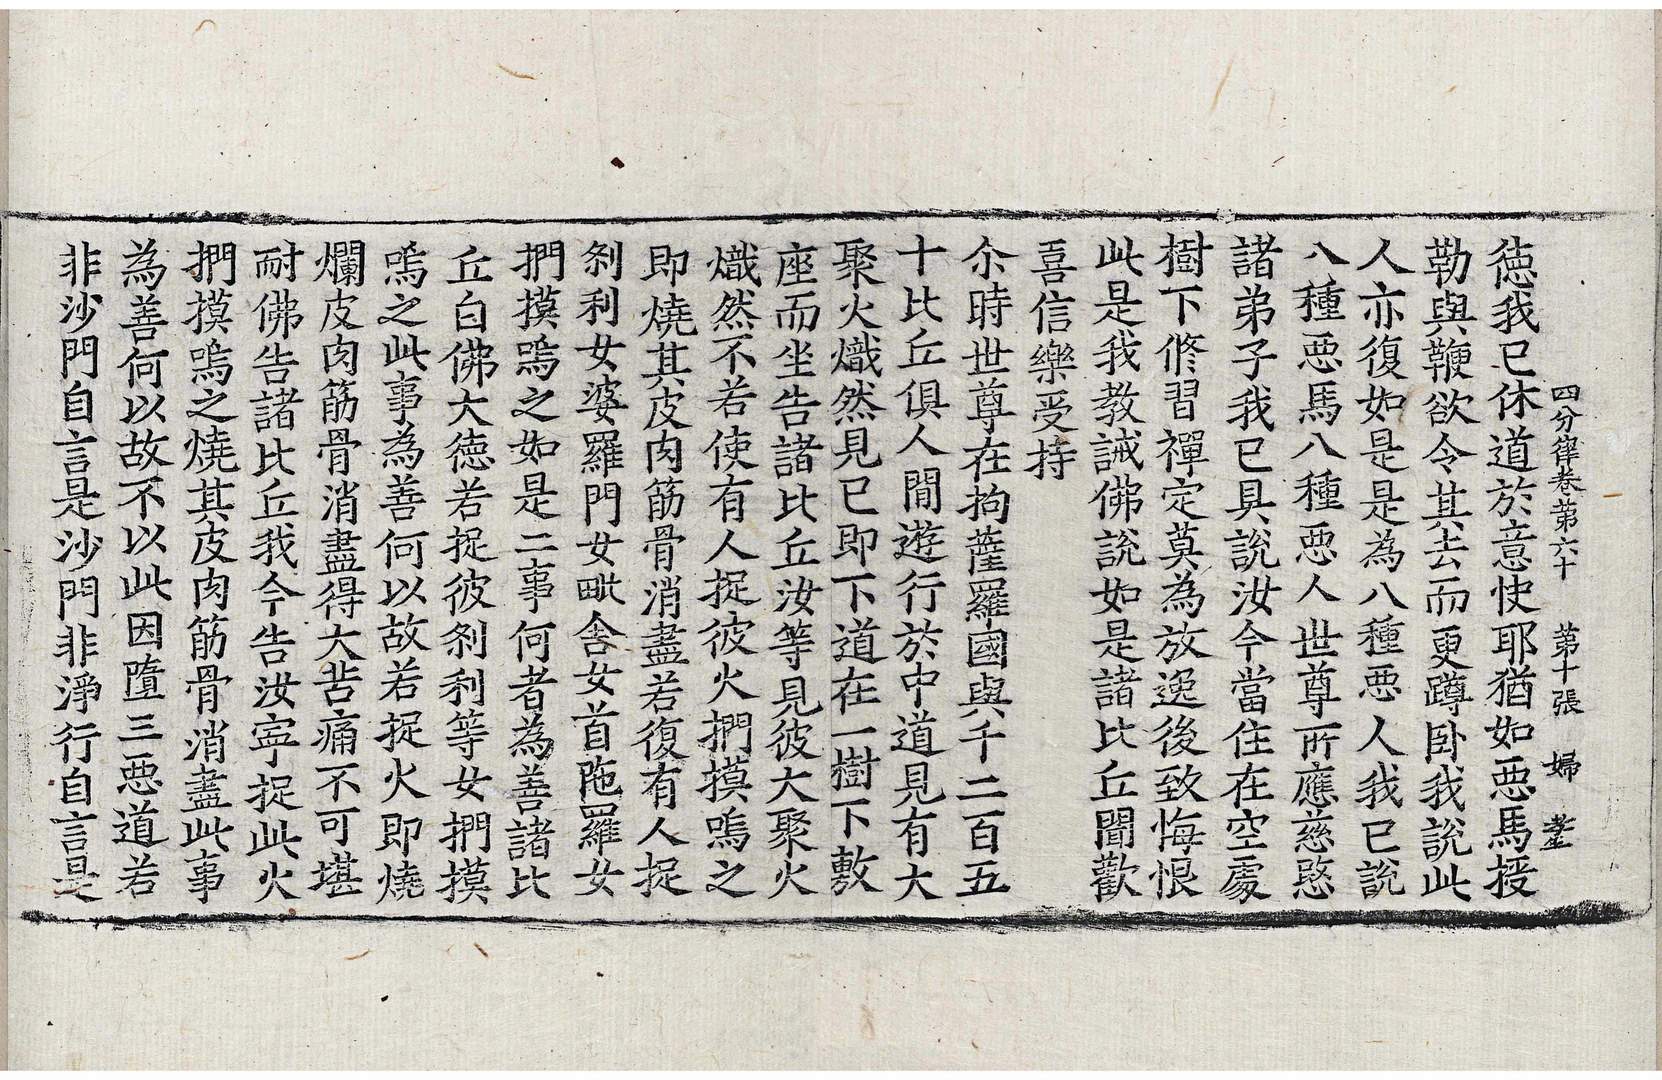 四分律卷第六十　第十張　婦
德我已休道於意快耶猶如惡馬授
勒與鞭欲令其去而更蹲卧我說此
人亦復如是是為八種惡人我已說
八種惡馬八種惡人世尊所應慈愍
諸弟子我已具說汝今當住在空處
樹下脩習禪定莫為放逸後致悔恨
此是我教誡佛說如是諸比丘聞歡
喜信樂受持
尒時世尊在拘薩羅國與千二百五
十比丘俱人間遊行於中道見有大
聚火熾然見已即下道在一樹下敷
座而坐告諸比丘汝等見彼大聚火
熾然不若使有人捉彼火捫摸嗚之
即燒其皮肉筋骨消盡若復有人捉
刹利女婆羅門女毗舍女首陁羅女
捫摸嗚之如是二事何者為善諸比
丘白佛大德若捉彼刹利等女捫摸
嗚之此事為善何以故若捉火即燒
爛皮肉筋骨消盡得大苦痛不可堪
耐佛告諸比丘我今告汝寧捉此火
捫摸嗚之燒其皮肉筋骨消盡此事
為善何以故不以此因墮三惡道若
非沙門自言是沙門非淨行自言是